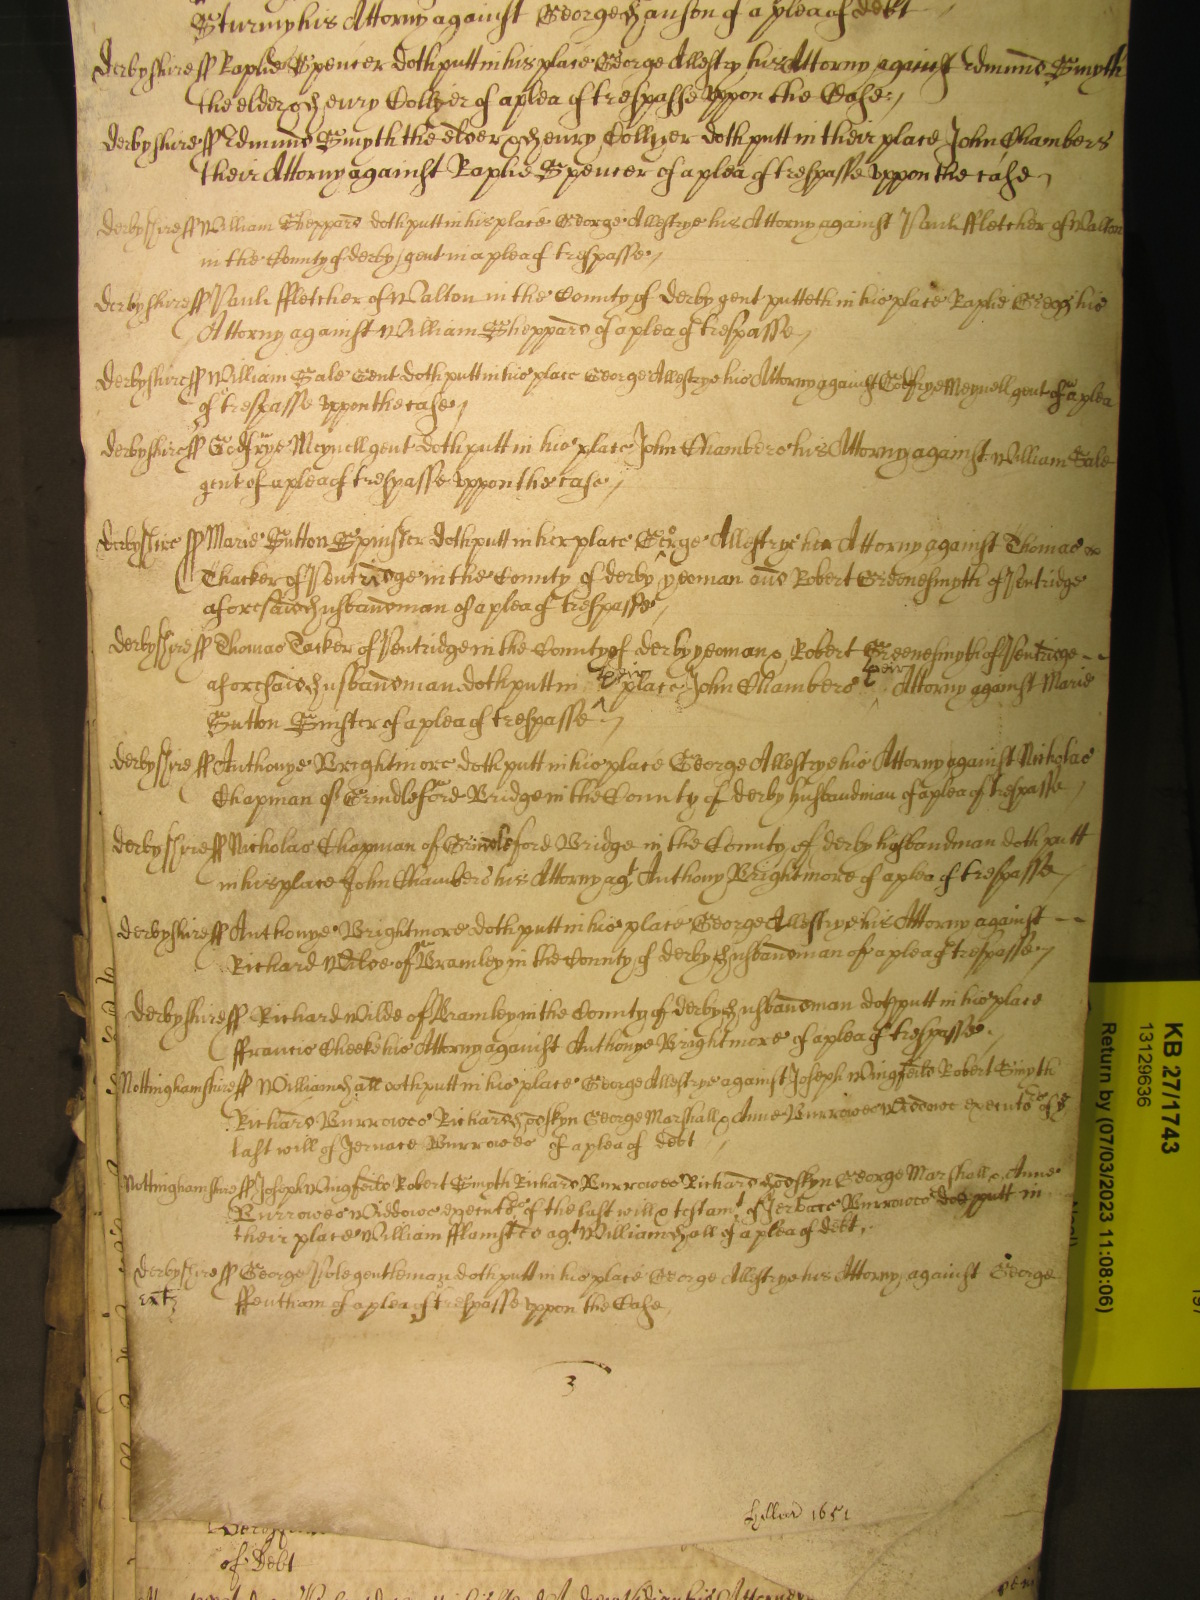 Sturmy his Attorny against George Hanson of a plea of debt
Derbyshire ss Raphe Spencer doth putt in his place George Allestry his Attorny against Edmund Smyth
the elder & Henry Collyer of a plea of trespasse uppon the Case
Derbyshire ss Edmund Smyth the elder & Henry Collyer doth putt in their place John Chambers
their Attorny against Raphe Spencer of a plea of trespasse uppon the case
Derbyshire ss William Sheppard doth putt in his place George Allestrye his Attorny against Paule ffletcher of Walton
in the County of derby gent in a plea of trespasse
Derbyshire ss Paule ffletcher of Walton in the County of Derby gent putteth in his place Raphe Gregg his
Attorny against William Sheppard of a plea of trespasse
Derbyshire ss William Sale Gent doth putt in his place George Allestrye his Attorny against Godfrye Meynell gent of a plea
of trespasse uppon the case
Derbyshire ss Godfrye Meynell gent doth putt in his place John Chambers his Attorny against William Sale
gent of a plea of trespasse uppon the case
Derbyshire ss Marie Sutton Spinster doth putt in her place George Allestrye her Attorny against Thomas
Thacker of Pentridge in the County of derby yeoman and Robert Greenesmyth of Pentridge
aforesaid husbandman of a plea of trespasse
Derbyshire ss Thomas Tacker of Pentridge in the County of derby yeoman & Robert Greenesmyth of Pentridge
aforesaid husbandman doth putt in their place John Chambers their Attorny against Marie
Sutton Sinster of a plea of trespasse
Derbyshire ss Anthonye Brightmore doth putt in his place George Allestrye his Attorny against Nicholas
Chapman of Grindleford Bridge in the County of derby husbandman of a plea of trespasse
Derbyshire ss Nicholas Chapman of Grindleford Bridge in the County of derby husbandman doth putt
in his place John Chambers his Attorny agt Anthony Brightmore of a plea of trespasse
Derbyshire ss Anthonye Brightmore doth putt in his place George Allestrye his Attorny against
Richard Wilde of Bramley in the County of derby husbandman of a plea of trespasse
Derbyshire ss Richard Wilde of Bramley in the County of derby husbandman doth putt in his place
ffrancis Cheeke his Attorny against Anthonye Brightmore of a plea of trespasse
Nottinghamshire ss William Hall doth putt in his place George Allestrye against Joseph Wingfeild Robert Smyth
Richard Burrowes Richard Hoskyn George Marshall & Anne Burrowes Widdowe executors of ye
last will of Burrowes of a plea of debt
Nottinghamshire ss Joseph Wingfeild Robert Smyth Richard Burrowes Richard Hoskyn George Marshall & Anne
Burrowes Widdowe executors of the last will & testamt of Burrowes doe putt in
their place William fflamsted agt William Hall of a plea of debt
Derbyshire ss George Pole gentleman doth putt in his place George Allestrye his Attorny against George
ffentham of a plea of trespasse uppon the Case
3
Hillar 1651
of Debt
KB 27/1743
13129636
Return by (07/03/2023 11:08:06)